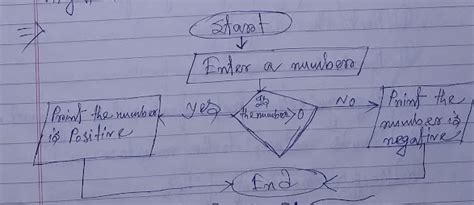 Start
Enter a number
If
the number>0
Yes
No
Print the number
is Positive
Print the
number is
negative
End